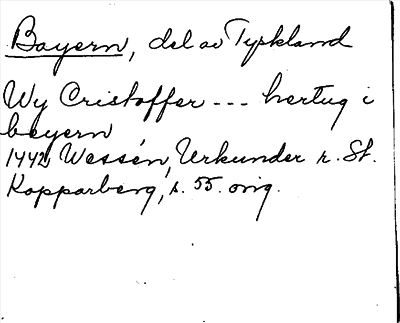 Bayern, del av Tyskland
Wy Cristoffer --- hertug i
beyern
1442, Wessén, Urkunder r. St.
Kopparberg, s. 55. orig.